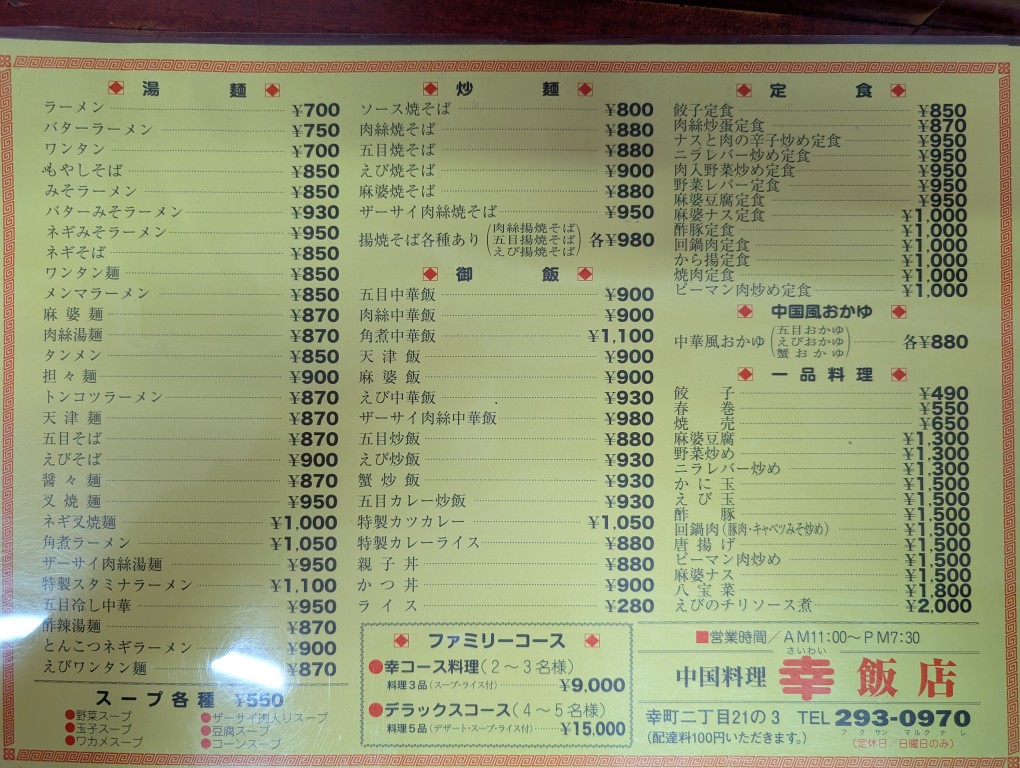 湯麺
ラーメン ¥700
バターラーメン ¥750
ワンタン ¥700
もやしそば ¥850
みそラーメン ¥850
バターみそラーメン ¥930
ネギみそラーメン ¥950
ネギそば ¥850
ワンタン麺 ¥850
メンマラーメン ¥850
麻婆麺 ¥870
肉絲湯麺 ¥870
タンメン ¥850
担々麺 ¥900
トンコツラーメン ¥870
天津麺 ¥870
五目そば ¥870
えびそば ¥900
醤々麺 ¥870
叉焼麺 ¥950
ネギ叉焼麺 ¥1,000
角煮ラーメン ¥1,050
ザーサイ肉絲湯麺 ¥950
特製スタミナラーメン ¥1,100
五目冷し中華 ¥950
酢辣湯麺 ¥870
とんこつネギラーメン ¥900
えびワンタン麺 ¥870
スープ各種 ¥550
●野菜スープ
●玉子スープ
●ワカメスープ
●ザーサイ肉入りスープ
●豆腐スープ
●コーンスープ
炒麺
ソース焼そば ¥800
肉絲焼そば ¥880
五目焼そば ¥880
えび焼そば ¥900
麻婆焼そば ¥880
ザーサイ肉絲焼そば ¥950
揚焼そば各種あり(肉絲揚焼そば 五目揚焼そば えび揚焼そば) 各¥980
御飯
五目中華飯 ¥900
肉絲中華飯 ¥900
角煮中華飯 ¥1,100
天津飯 ¥900
麻婆飯 ¥900
えび中華飯 ¥930
ザーサイ肉絲中華飯 ¥980
五目炒飯 ¥880
えび炒飯 ¥930
蟹炒飯 ¥930
五目カレー炒飯 ¥930
特製カツカレー ¥1,050
特製カレーライス ¥880
親子丼 ¥880
かつ丼 ¥900
ライス ¥280
ファミリーコース
●幸コース料理(2〜3名様)
料理3品(スープ・ライス付) ¥9,000
●デラックスコース(4〜5名様)
料理5品(デザート・スープ・ライス付) ¥15,000
定食
餃子定食 ¥850
肉絲炒蛋定食 ¥870
ナスと肉の辛子炒め定食 ¥950
ニラレバー炒め定食 ¥950
肉入野菜炒め定食 ¥950
野菜レバー定食 ¥950
麻婆豆腐定食 ¥950
麻婆ナス定食 ¥1,000
酢豚定食 ¥1,000
回鍋肉定食 ¥1,000
から揚定食 ¥1,000
焼肉定食 ¥1,000
ピーマン肉炒め定食 ¥1,000
中国風おかゆ
中華風おかゆ(五目おかゆ えびおかゆ 蟹おかゆ) 各¥880
一品料理
餃子 ¥490
春巻 ¥550
焼売 ¥650
麻婆豆腐 ¥1,300
野菜炒め ¥1,300
ニラレバー炒め ¥1,300
かに玉 ¥1,500
えび玉 ¥1,500
酢豚 ¥1,500
回鍋肉(豚肉・キャベツみそ炒め) ¥1,500
唐揚げ ¥1,500
ピーマン肉炒め ¥1,500
麻婆ナス ¥1,500
八宝菜 ¥1,800
えびのチリソース煮 ¥2,000
■営業時間/AM11:00〜PM7:30
さいわい
中国料理 幸飯店
幸町二丁目21の3 TEL 293-0970
フクサン マルクナレ
(配達料100円いただきます。) (定休日/日曜日のみ)